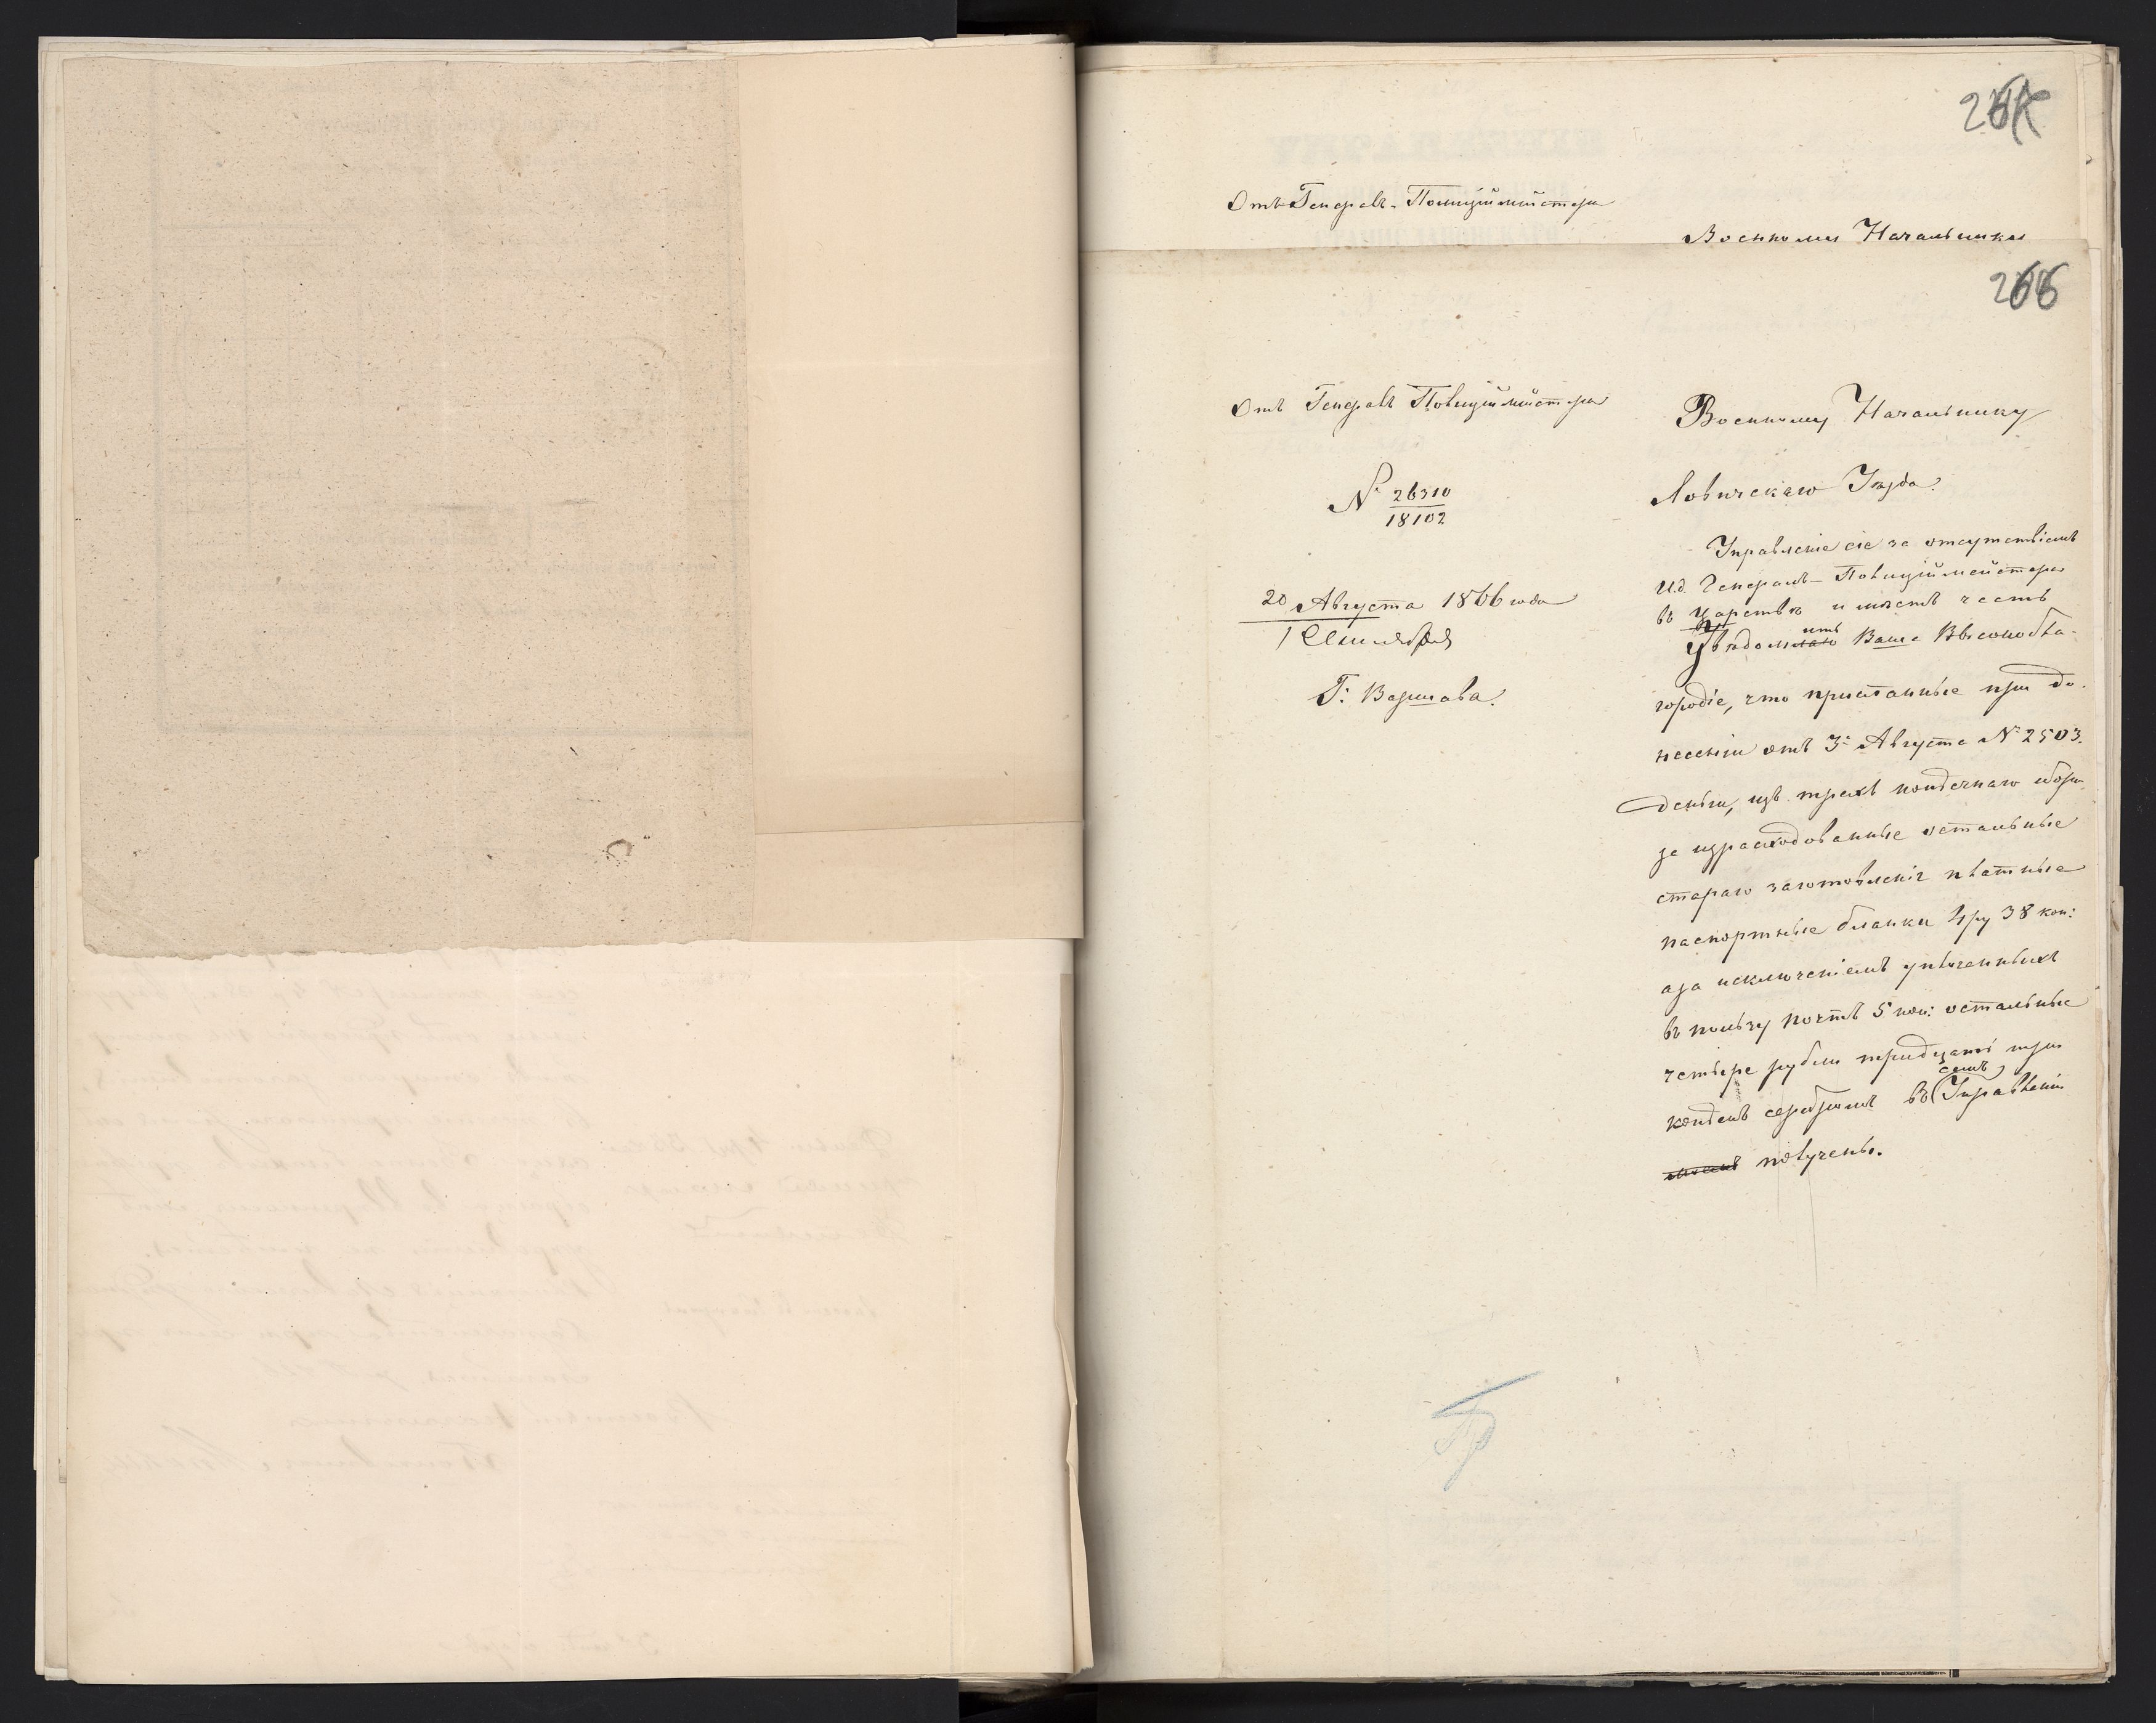 Отъ Генералъ-Полиціймейстера
Военному Начальнику
266
Отъ Генералъ Полиціймейстера
№ 26310
18102
20 Августа 1866 года
1 Сентября
Г: Варшава.
Военному Начальнику
Ловичскаго Уѣзда.
Управленіе сіе за отсутствіемъ
И.д. Генералъ-Полиціймейстера
въ Царствѣ имѣетъ честь
увѣдомить Ваше Высокобла-
городіе, что присланные при до-
несеніи отъ 3: Августа № 2503.
деньги, изъ трехъ копѣечнаго сбора
за израсходованные остальные
стараго заготовленія платные
паспортные бланки 4 ру 38 коп:
а за исключеніемъ уплаченныхъ
въ пользу почтъ 5 коп: остальные
четыре рубли тридцать три
копѣекъ серебромъ въ семъ Управленіи
получены.